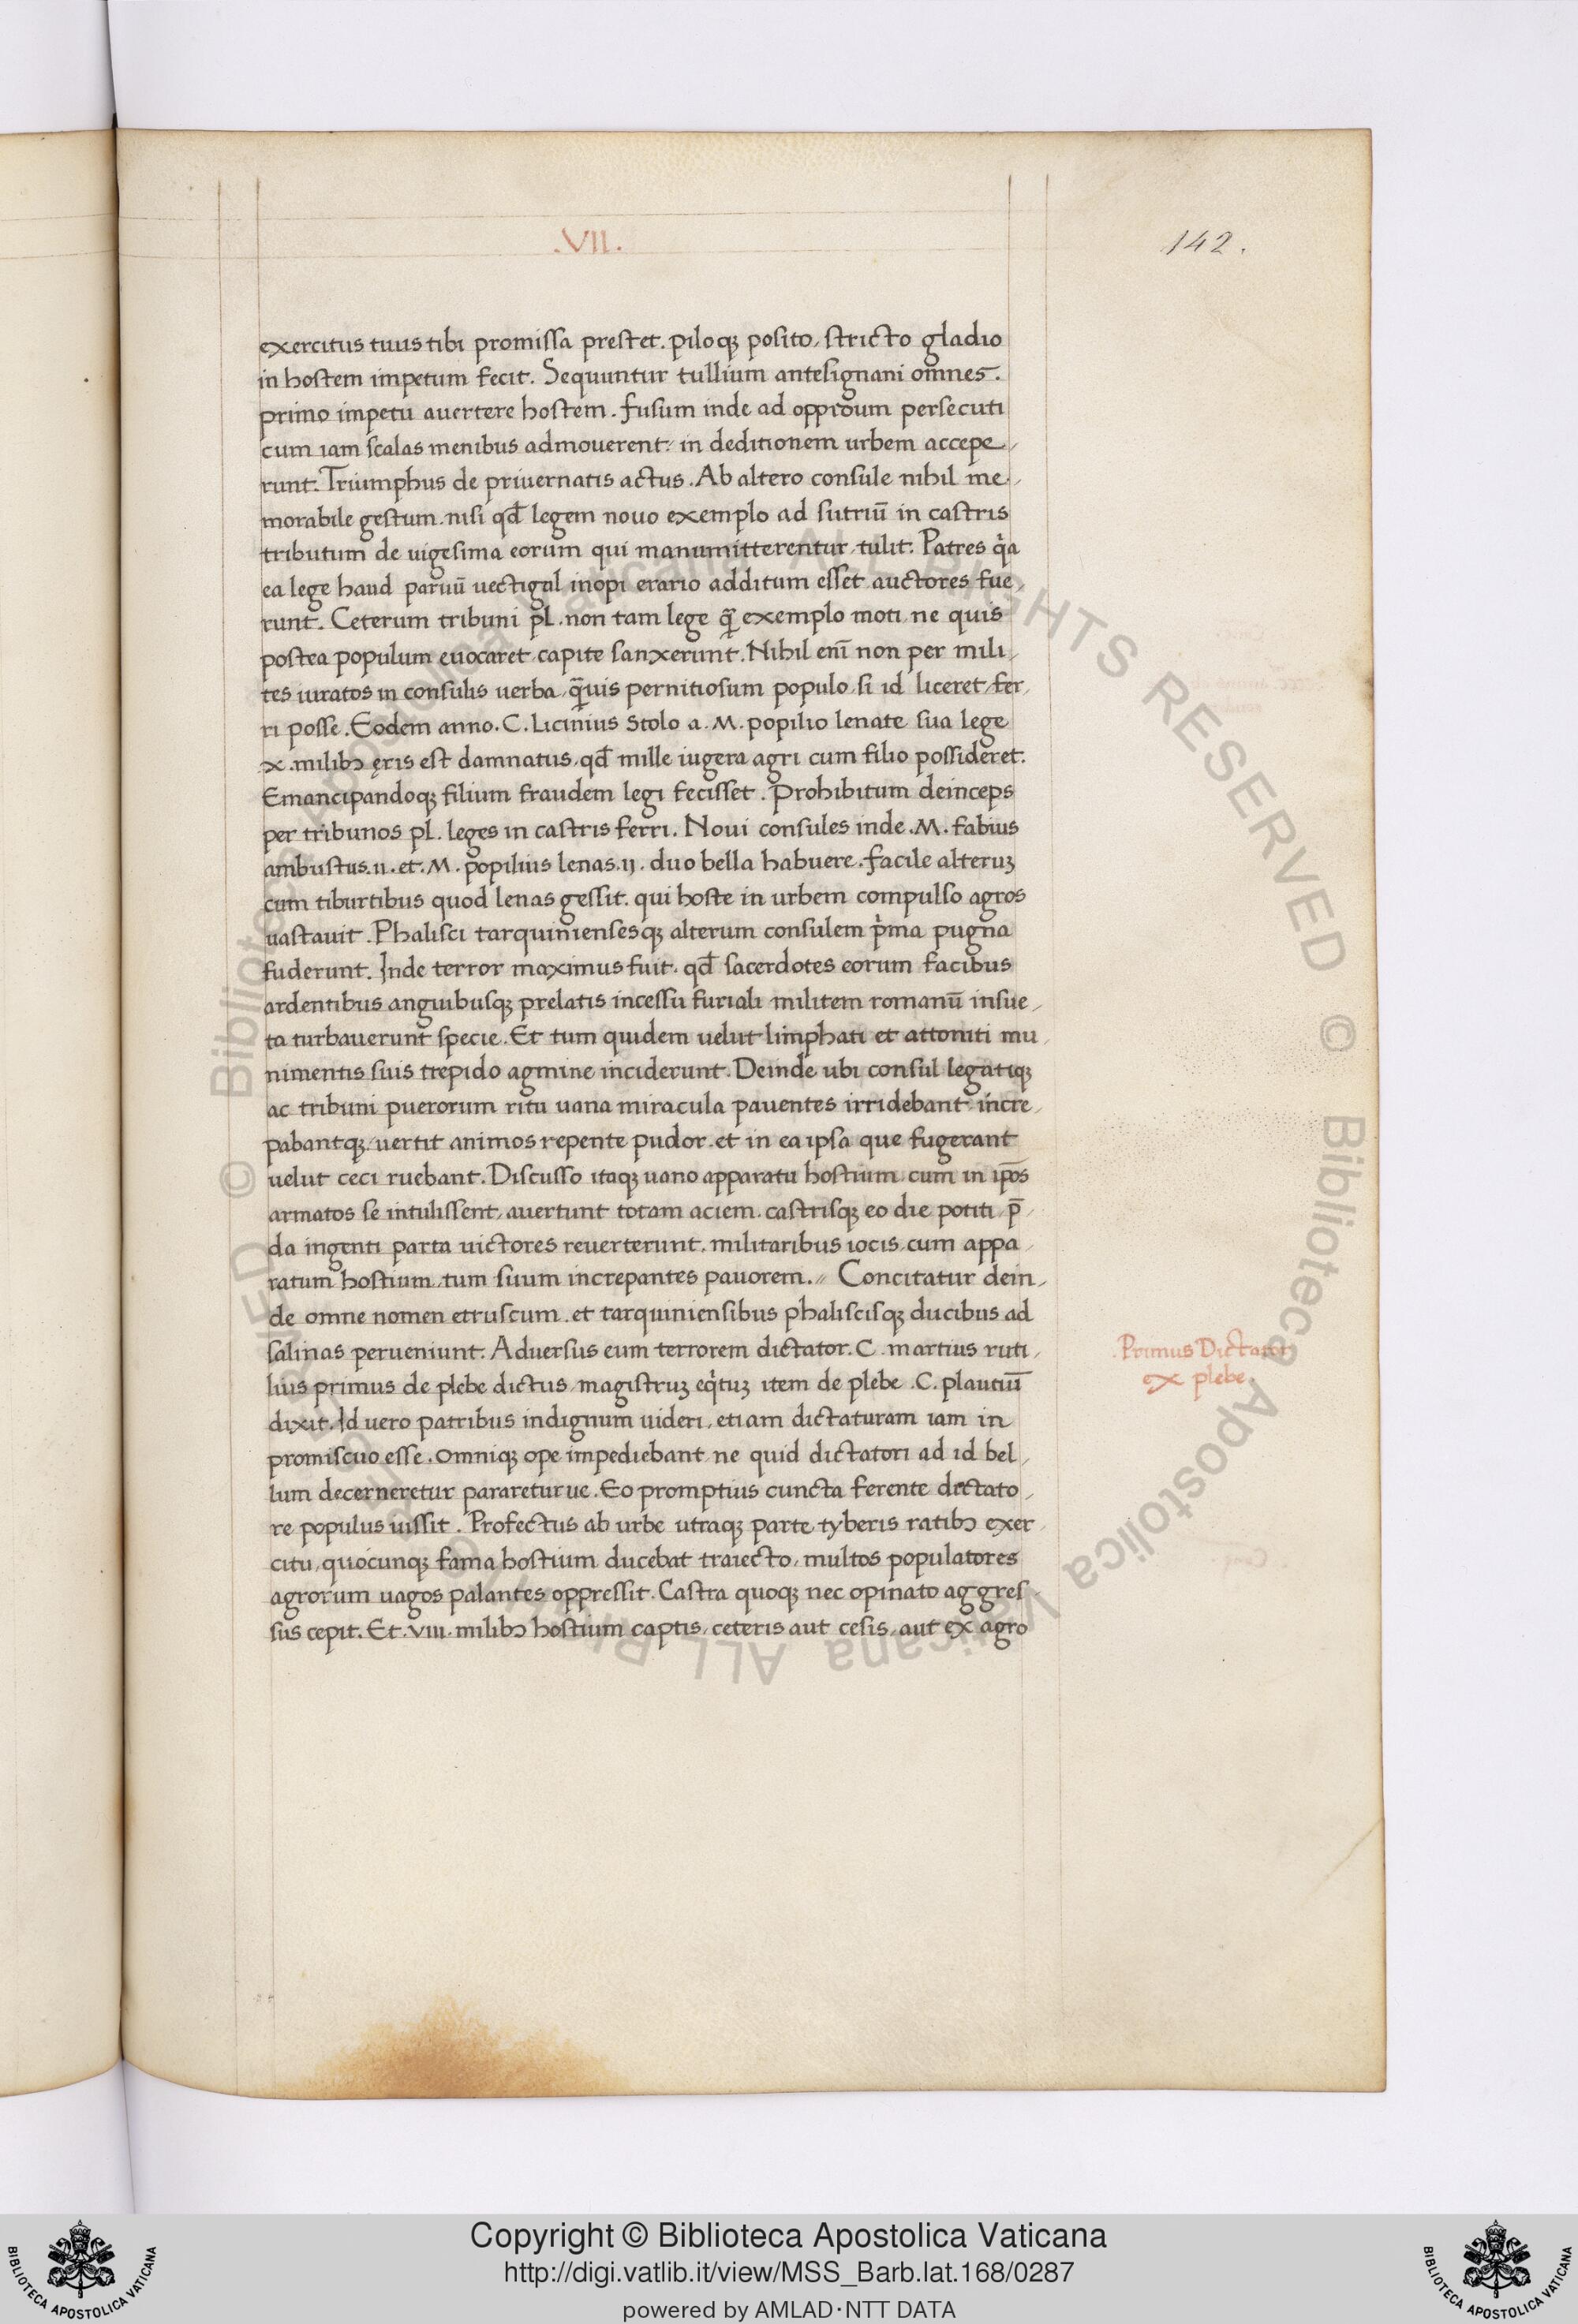 .VII.
142.
exercitus tuus tibi promissa prestet. piloqꝫ posito, stricto gladio
in hostem impetum fecit. Sequuntur tullium antesignani omnes.
primo impetu auertere hostem. fusum inde ad oppidum persecuti
cum iam scalas menibus admouerent, in deditionem urbem accepe,
runt. Triumphus de priuernatis actus. Ab altero consule nihil me,
morabile gestum. nisi qđ legem nouo exemplo ad sutriū in castris
tributum de uigesima eorum qui manumitterentur, tulit. Patres qͥa
ea lege haud paruū uectigal inopi erario additum esset auctores fue,
runt. Ceterum tribuni pl̄. non tam lege q̄ exemplo moti, ne quis
postea populum euocaret, capite sanxerunt. Nihil eni᷒ non per mili,
tes iuratos in consulis uerba, q̄uis pernitiosum populo, si id liceret, fer,
ri posse. Eodem anno. C. Licinius Stolo a. M. popilio lenate sua lege
x. milibꝫ ęris est damnatus, qđ mille iugera agri cum filio possideret.
Emancipandoqꝫ filium fraudem legi fecisset. Prohibitum deinceps
per tribunos pl̄. leges in castris ferri. Noui consules inde. M. fabius
ambustus. ii. et. M. popilius lenas. ij. duo bella habuere. facile alteruꝫ
cum tiburtibus quod lenas gessit. qui hoste in urbem compulso agros
uastauit. Phalisci tarquiniensesqꝫ alterum consulem pͥma pugna
fuderunt. Inde terror maximus fuit. qđ sacerdotes eorum facibus
ardentibus anguibusqꝫ prelatis incessu furiali militem romanū insue,
ta turbauerunt specie. Et tum quidem uelut limphati et attoniti mu,
nimentis suis trepido agmine inciderunt. Deinde ubi consul legatiqꝫ
ac tribuni puerorum ritu uana miracula pauentes irridebant, incre,
pabantqꝫ, uertit animos repente pudor. et in ea ipsa que fugerant
uelut ceci ruebant. Discusso itaqꝫ uano apparatu hostium, cum in ip̄os
armatos se intulissent, auertunt totam aciem. castrisqꝫ eo die potiti, p̄,
da ingenti parta uictores reuerterunt. militaribus iocis, cum appa,
ratum hostium, tum suum increpantes pauorem. // Concitatur dein,
de omne nomen etruscum. et tarquiniensibus phaliscisqꝫ ducibus ad
salinas perueniunt. Aduersus eum terrorem dictator. C. martius ruti,
lius primus de plebe dictus, magistruꝫ eqͥtuꝫ item de plebe. C. plautiū
dixit. Id uero patribus indignum uideri, etiam dictaturam iam in
promiscuo esse. omniqꝫ ope impediebant ne quid dictatori ad id bel,
lum decerneretur parareturue. Eo promptius cuncta ferente dictato,
re populus iussit. Profectus ab urbe utraqꝫ parte tyberis ratibꝫ exer,
citu, quocunqꝫ fama hostium ducebat traiecto, multos populatores
agrorum uagos palantes oppressit. Castra quoqꝫ nec opinato aggres,
sus cepit. Et. viii. milibꝫ hostium captis, ceteris aut cesis, aut ex agro
.Primus Dictator
ex plebe.
© Biblioteca Apostolica Vaticana ALL RIGHTS RESERVED © Biblioteca Apostolica Vaticana ALL RIGHTS RESERVED
Copyright © Biblioteca Apostolica Vaticana
http://digi.vatlib.it/view/MSS_Barb.lat.168/0287
powered by AMLAD·NTT DATA
BIBLIOTECA APOSTOLICA VATICANA
BIBLIOTECA APOSTOLICA VATICANA